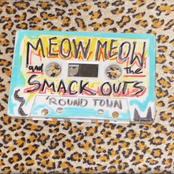 MEOW MEOW
and the
SMACK OUTS
'ROUND TOWN